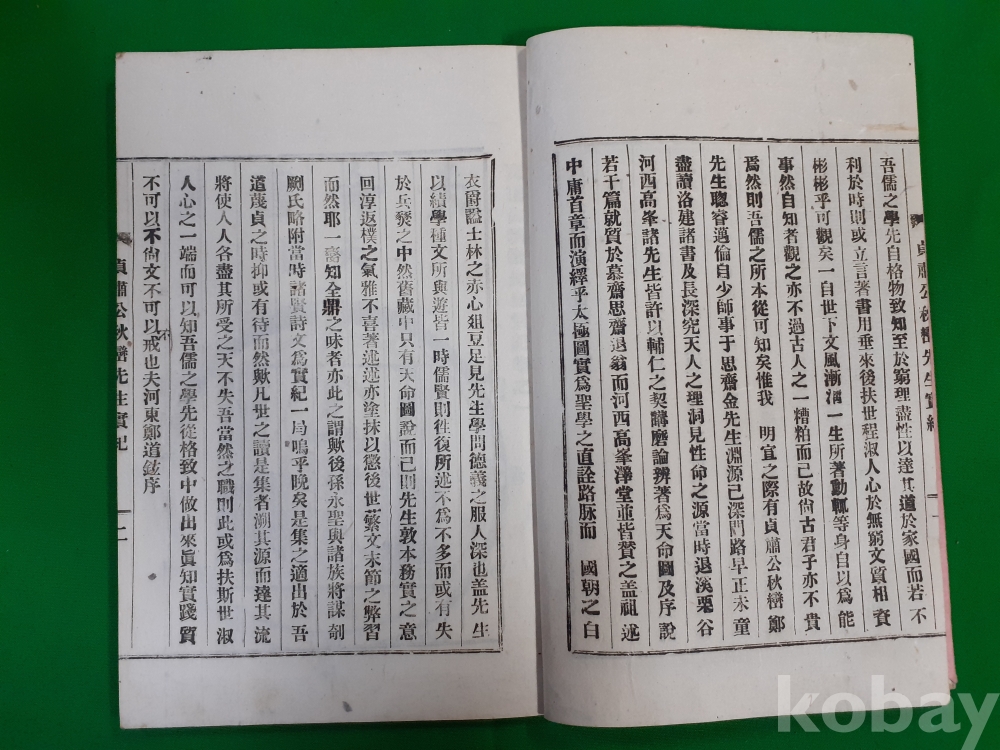 吾儒之學先自格物致知至於窮理盡性以達其道於家國而若不
利於時則或立言著書用垂來後扶世程淑人心於無窮文質相資
彬彬乎可觀矣一自世下文風漸漓一生所著動輒等身自以爲能
事然自知者觀之亦不過古人之一糟粕而已故尙古君子亦不貴
焉然則吾儒之所本從可知矣惟我 明宣之際有貞肅公秋巒鄭
先生聰睿邁倫自少師事于思齋金先生淵源已深門路早正未童
盡讀洛建諸書及長深究天人之理洞見性命之源當時退溪栗谷
河西高峯諸先生皆許以輔仁之契講磨論辨著爲天命圖及序說
若干篇就質於慕齋思齋退翁而河西高峯澤堂並皆贊之盖祖述
中庸首章而演繹乎太極圖實爲聖學之直詮路脉而 國朝之白
貞肅公秋巒先生實紀
一
衣爵謚士林之亦心俎豆足見先生學問德義之服人深也盖先生
以績學種文所與遊皆一時儒賢則徃復所述不爲不多而或有失
於兵燹之中然舊藏中只有天命圖說而已則先生敦本務實之意
回淳返樸之氣雅不喜著述述亦塗抹以懲後世蘩文末節之弊習
而然耶一臠知全鼎之味者亦此之謂歟後孫永聖與諸族將謀剞
劂氏略附當時諸賢詩文爲實紀一局嗚乎晚矣是集之適出於吾
道蔑貞之時抑或有待而然歟凡世之讀是集者溯其源而達其流
將使人人各盡其所受之天不失吾當然之職則此或爲扶斯世淑
人心之一端而可以知吾儒之學先從格致中做出來眞知實踐質
不可以不尙文不可以不戒也夫河東鄭道鈙序
貞肅公秋巒先生實記
二
kobay